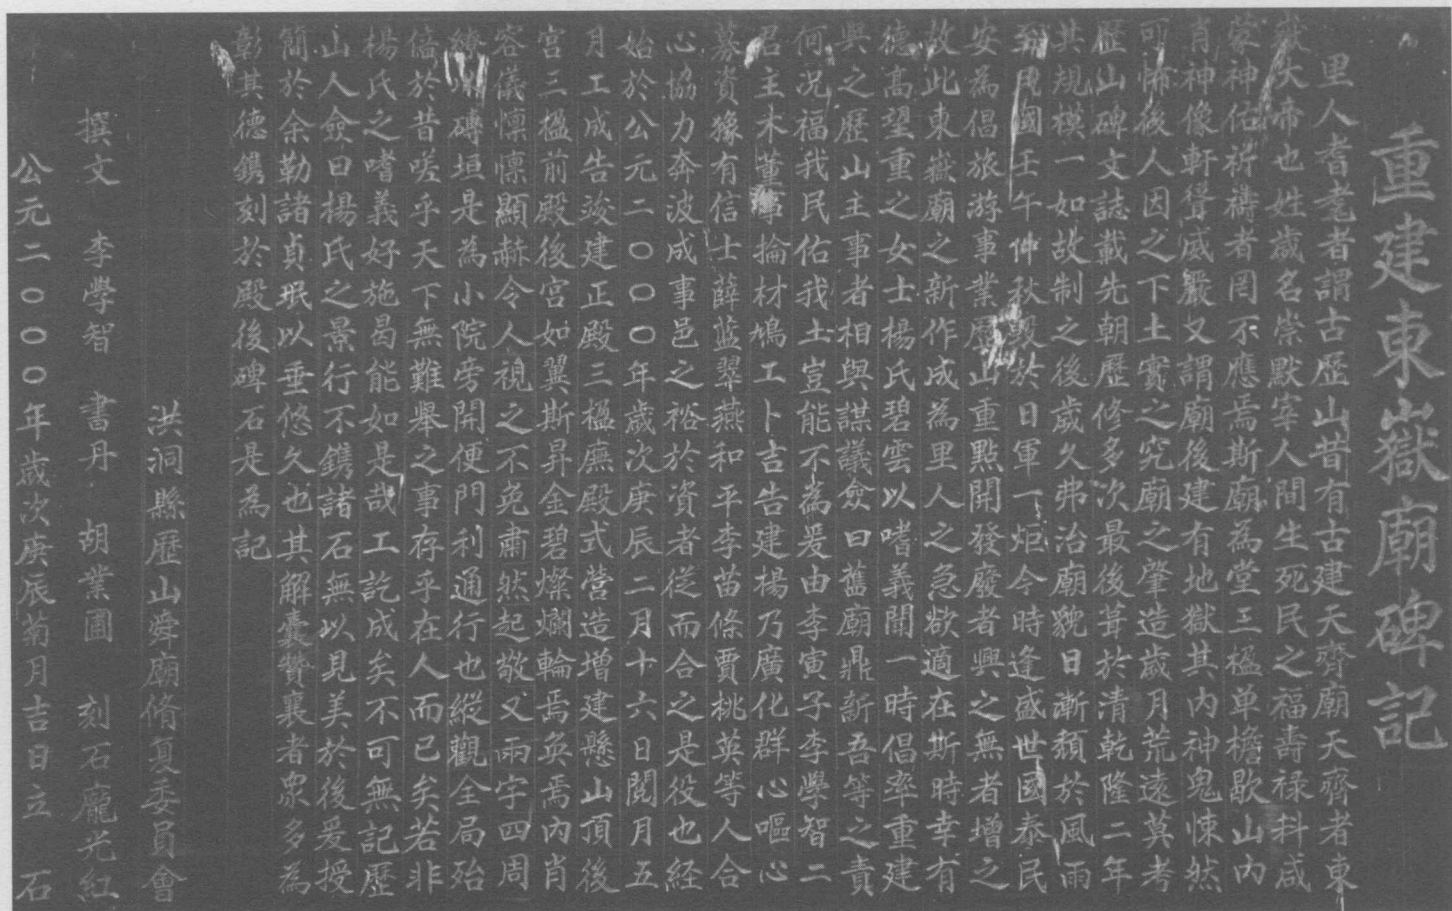 重建東嶽廟碑記
里人耆耄者謂古歷山昔有古建天齊廟天齊者東
嶽大帝也姓歲名崇默宰人間生死民之福壽禄科咸
蒙神佑祈禱者罔不應焉斯廟為堂三楹单檐歇山内
肖神像軒聳威嚴又謂廟後建有地獄其内神鬼悚然
可怖後人因之下土實之究廟之肇造歲月荒遠莫考
歷山碑文誌載先朝歷修多次最後葺於清乾隆二年
其規模一如故制之後歲久弗治廟貌日漸頹於風雨
到民國壬午仲秋毁於日軍一炬今時逢盛世國泰民
安為倡旅游事業歷山重點開發廢者興之無者增之
故此東嶽廟之新作成為里人之急欲適在斯時幸有
德高望重之女士楊氏碧雲以嗜義闻一時倡率重建
與之歷山主事者相與謀議僉曰舊廟鼎新吾等之責
何况福我民佑我土豈能不為爰由李寅子李學智二
君主未董事掄材鳩工卜吉告建楊乃廣化群心嘔心
募資獴有信士薛蓝翠燕和平李苗條賈桃英等人合
心協力奔波成事邑之裕於資者從而合之是役也経
始於公元二〇〇〇年歲次庚辰二月十六日閲月五
月工成告竣建正殿三楹廡殿式营造增建懸山頂後
宫三楹前殿後宫如翼斯昇金碧燦爛輪焉奂焉内肖
容儀懔懔顯赫令人視之不免肅然起敬又兩宇四周
繚以磚垣是為小院旁開便門利通行也縱觀全局殆
倍於昔嗟乎天下無難舉之事存乎在人而已矣若非
楊氏之嗜義好施曷能如是哉工訖成矣不可無記歷
山人僉曰楊氏之景行不鐫諸石無以見美於後爰授
簡於余勒諸貞珉以垂悠久也其解囊贊襄者衆多為
彰其德鐫刻於殿後碑石是為記
洪洞縣歷山舜廟脩复委員會
撰文 李學智 書丹 胡業圃 刻石龐光紅
公元二〇〇〇年歲次庚辰菊月吉日立 石